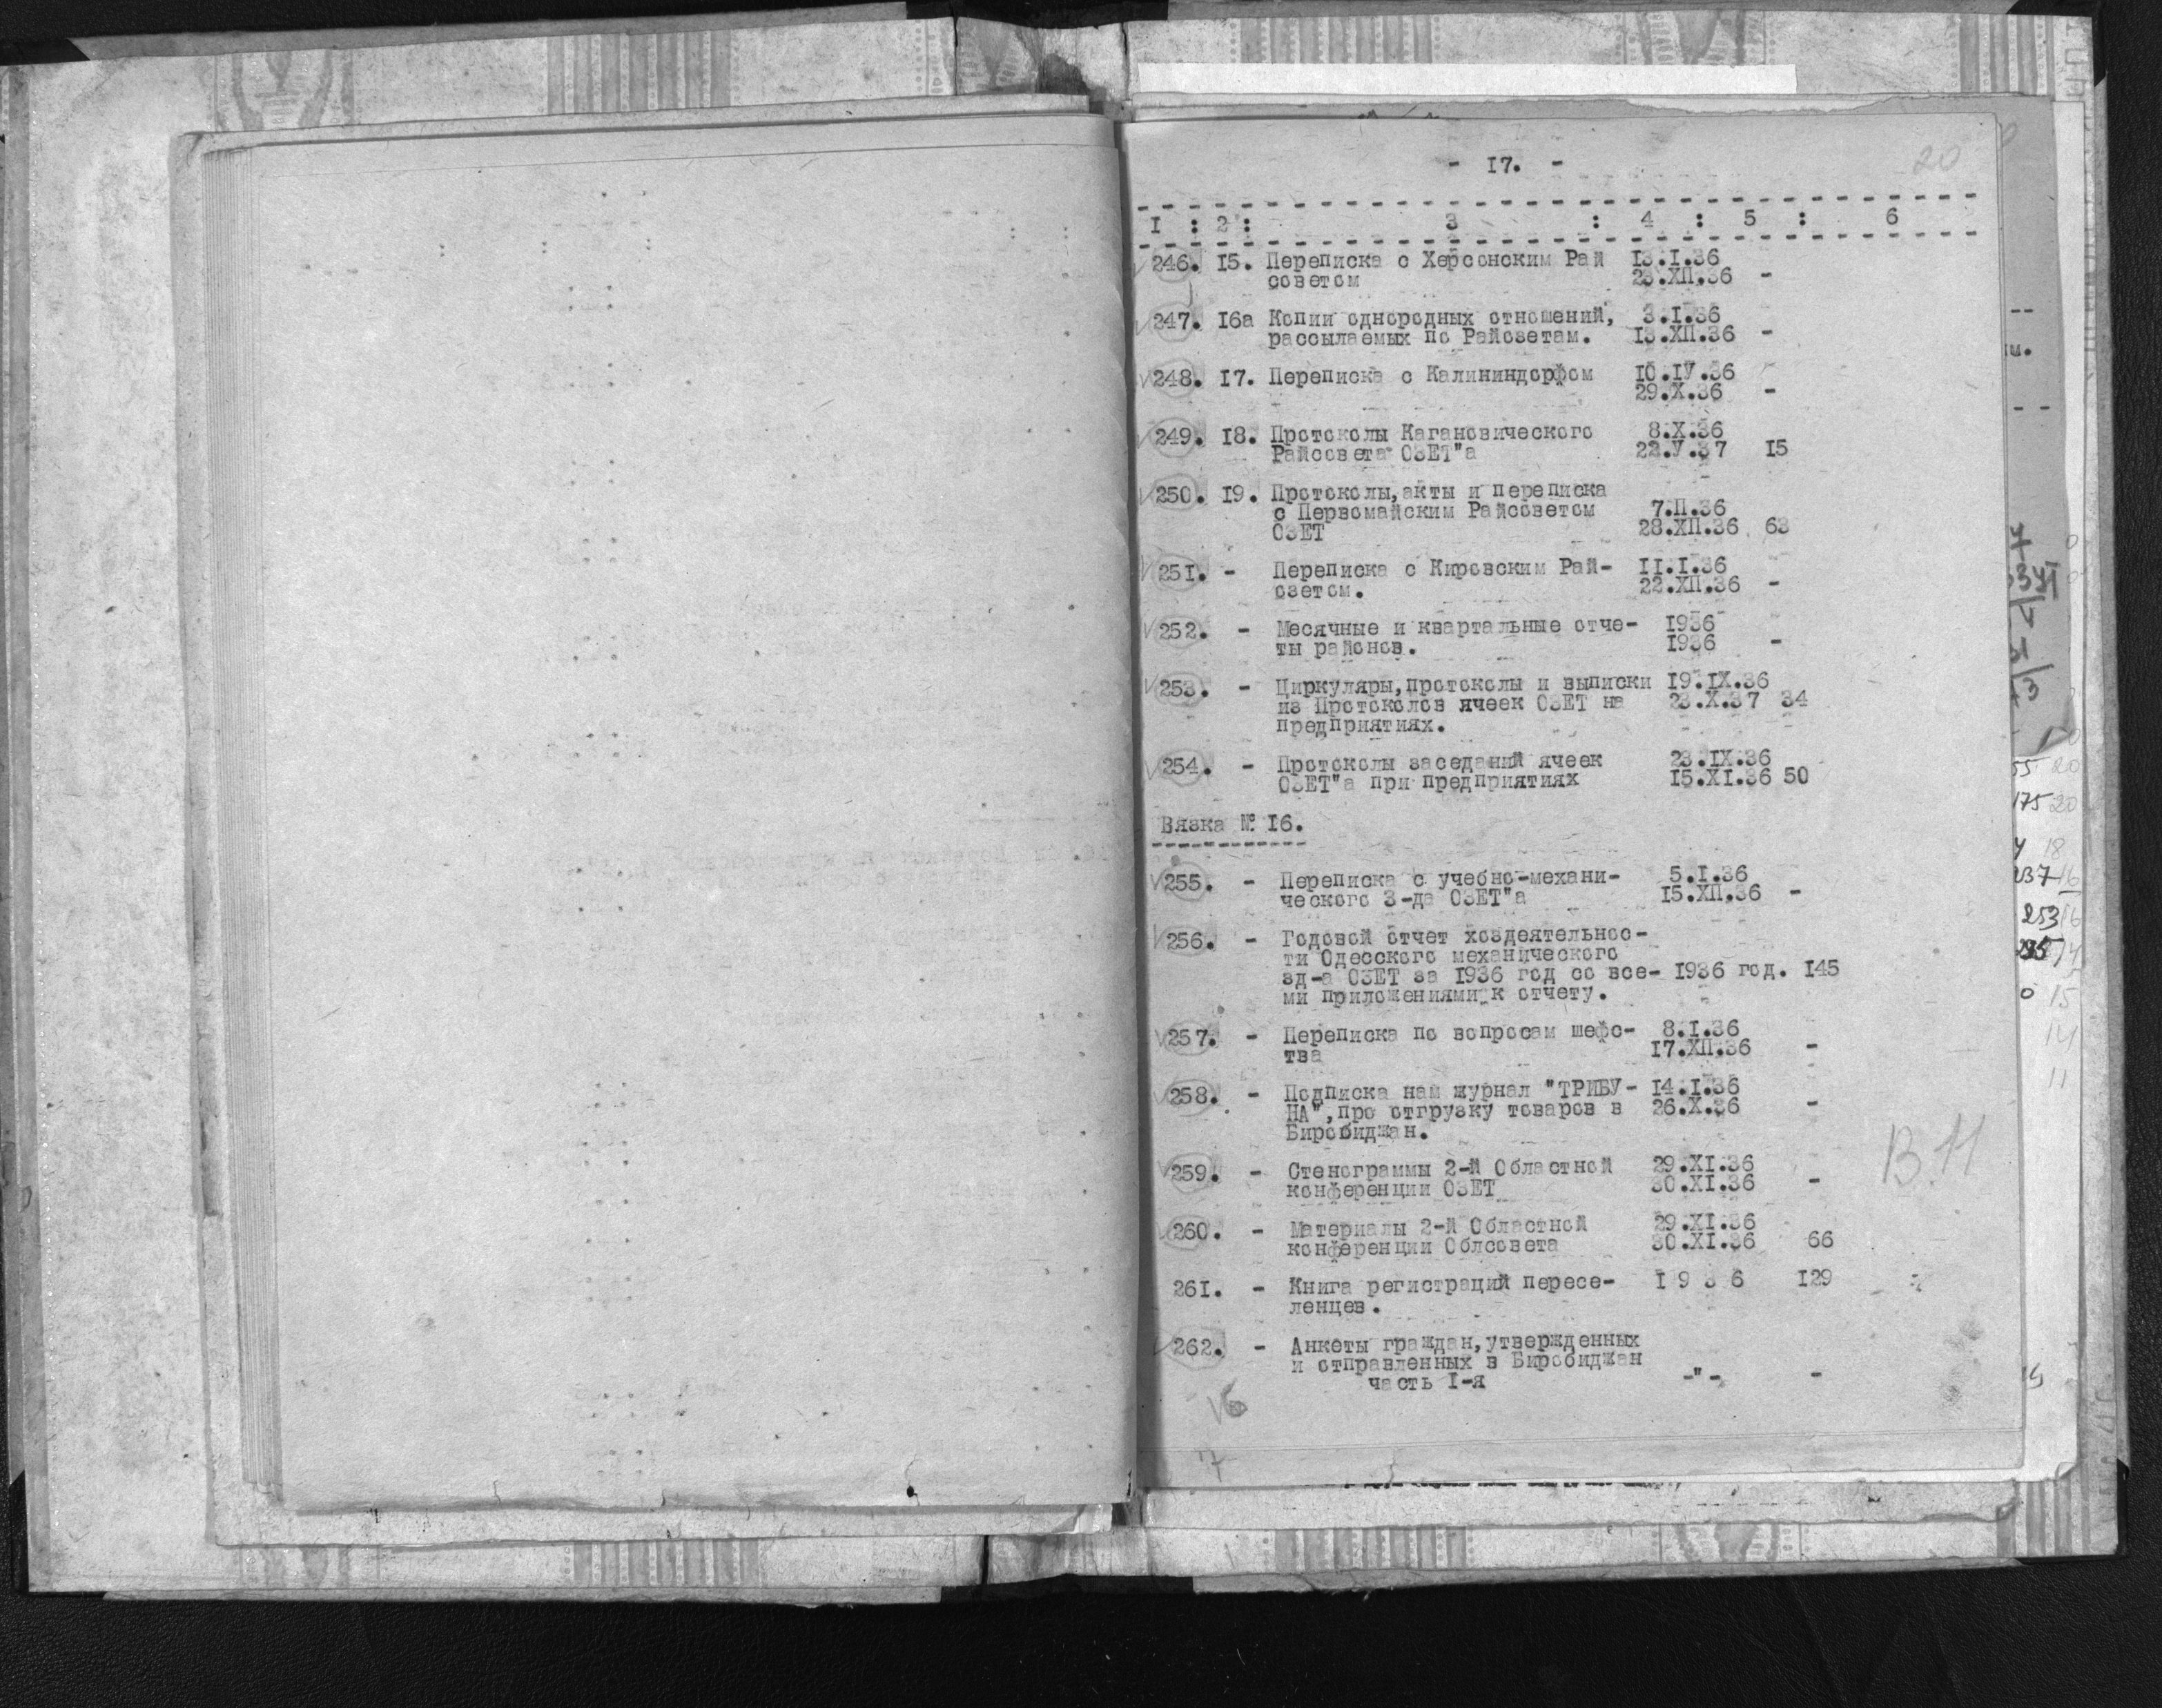 - I7. -
20
I : 2 : 3 : 4 : 5 : 6
246. I5. Переписка с Херсонским Рай I3.I.36
советом 23.XП.36 -
247. I6а Копии однородных отношений, 3.I.36
рассылаемых по Райозетам. I3.XП.36 -
248. I7. Переписка с Калининдорфом I0.IУ.36
29.X.36 -
249. I8. Протоколы Кагановического 8.X.36
Райсовета ОЗЕТ"а 22.У.37 I5
250. I9. Протоколы,акты и переписка
с Первомайским Райсоветом 7.П.36
ОЗЕТ 28.XП.36 63
25I. - Переписка с Кировским Рай- II.I.36
озетом. 22.XП.36 -
252. - Месячные и квартальные отче- I936
ты районов. I936 -
253. - Циркуляры,протоколы и выписки I9.IX.36
из Протоколов ячеек ОЗЕТ на 23.X.37 34
предприятиях.
254. - Протоколы заседаний ячеек 23.IX.36
ОЗЕТ"а при предприятиях I5.XI.36 50
Вязка № I6.
255. - Переписка с учебно-механи- 5.I.36
ческого З-да ОЗЕТ"а I5.XП.36 -
256. - Годовой отчет хоздеятельнос-
ти Одесского механического
зд-а ОЗЕТ за I936 год со все- I936 год. I45
ми приложениями к отчету.
257. - Переписка по вопросам шефс- 8.I.36
тва I7.XП.36 -
258. - Подписка нам журнал "ТРИБУ- I4.I.36
НА",про отгрузку товаров в 26.X.36 -
Биробиджан.
259. - Стенограммы 2-й Областной 29.XI.36
конференции ОЗЕТ 30.XI.36 -
В.11
260. - Материалы 2-й Областной 29.XI.36
конференции Облсовета 30.XI.36 66
26I. - Книга регистраций пересе- I 9 3 6 I29
ленцев.
262. - Анкеты граждан,утвержденных
и отправленных в Биробиджан
часть I-я -"- -
16
7
175 20
237 16
253 16